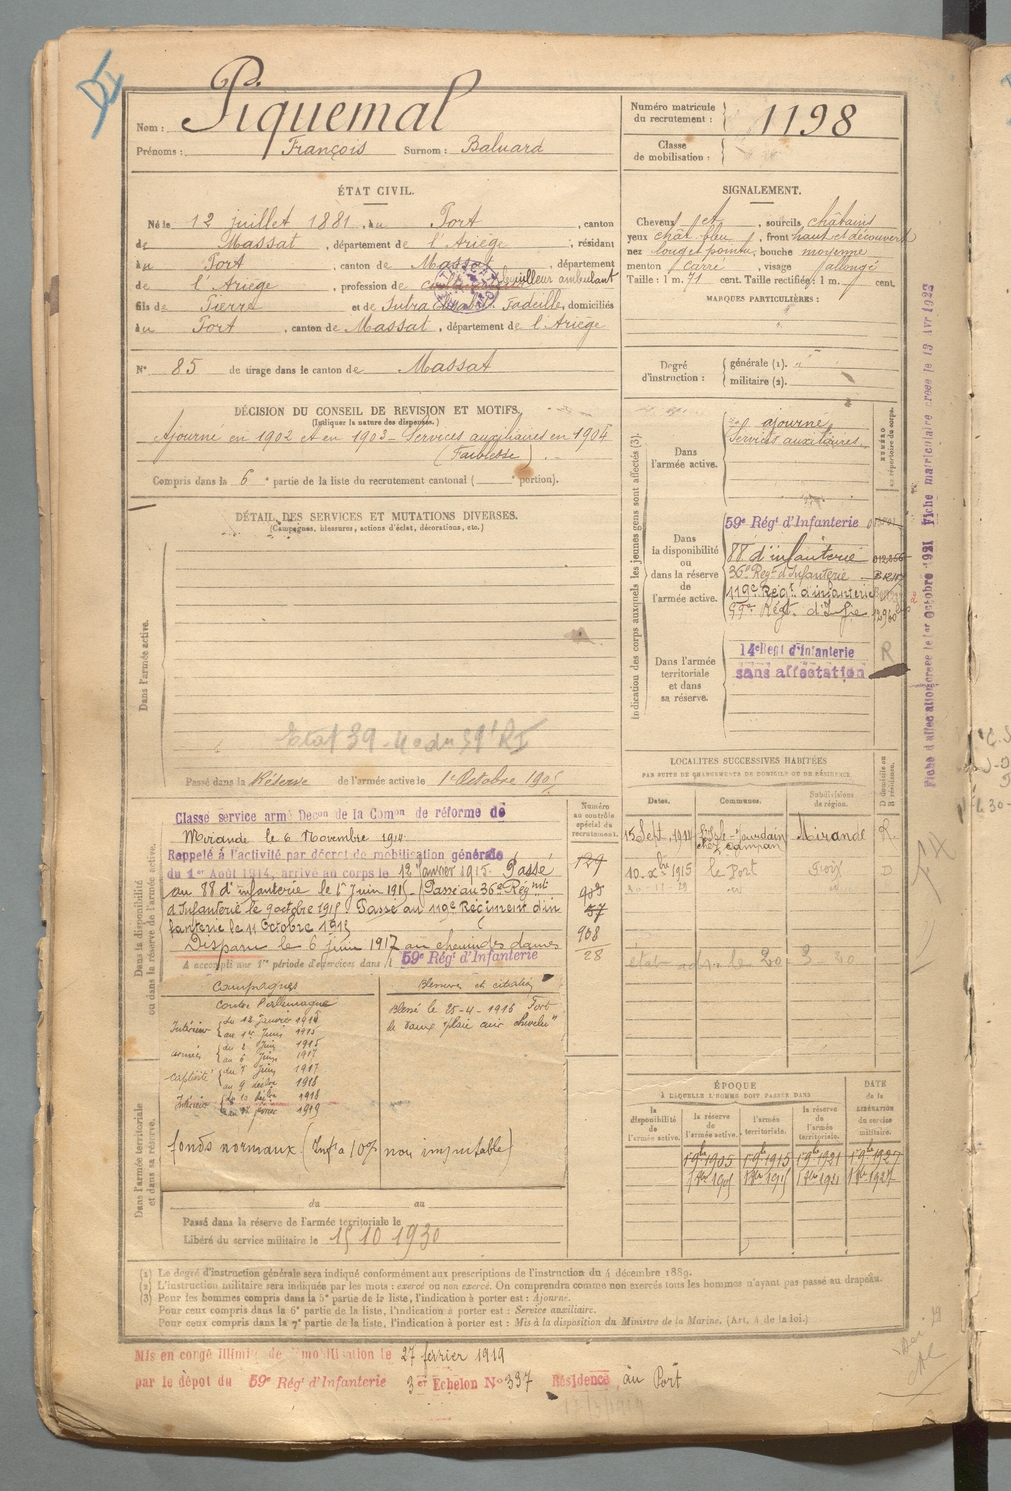 Nom : Piquemal
Prénoms : François Surnom : Baluard
Numéro matricule du recrutement : 1198
Classe de mobilisation :
ÉTAT CIVIL.
Né le 12 juillet 1881, au Port, canton
de Massat, département de l'Ariège, résidant
au Port, canton de Massat, département
de l'Ariège, profession de cultivateur ambulant
fils de Pierre et de Sutra Fadeille, domiciliés
au Port, canton de Massat, département de l'Ariège
N° 85 de tirage dans le canton de Massat
SIGNALEMENT.
Cheveux et, sourcils châtains
yeux chât bleu, front haut et découvert
nez long et pointu, bouche moyenne
menton carré, visage allongé
Taille : 1 m. 71 cent. Taille rectifiée : 1 m. cent.
MARQUES PARTICULIÈRES :
Degré d'instruction : générale (1).
militaire (2).
DÉCISION DU CONSEIL DE REVISION ET MOTIFS.
(Indiquer la nature des dispenses.)
Ajourné en 1902 et en 1903 - Services auxiliaires en 1904
(Faiblesse)
Compris dans la 6e partie de la liste du recrutement cantonal ( e portion).
DÉTAIL DES SERVICES ET MUTATIONS DIVERSES.
(Campagnes, blessures, actions d'éclat, décorations, etc.)
Dans l'armée active.
Etat 39-40 du RI
Passé dans la Réserve de l'armée active le 1er Octobre 1905
Indication des corps auxquels les jeunes gens sont affectés (3).
NUMÉRO au répertoire du corps.
Dans l'armée active.
ajourné
Services auxiliaires
Dans la disponibilité ou dans la réserve de l'armée active.
59e Régt d'Infanterie
88 d'infanterie
36e Regt d'Infanterie
119e Régt d'infanterie
99e Régt d'Infie
Dans l'armée territoriale et dans sa réserve.
14e Regt d'Infanterie
sans affectation
R
LOCALITÉS SUCCESSIVES HABITÉES
PAR SUITE DE CHANGEMENTS DE DOMICILE OU DE RÉSIDENCE.
Dates. Communes. Subdivisions de région. D domicile ou R résidence.
15 Sept. 1914 l'Isle-Jourdain chez Campan Mirande R.
10 Xbre 1915 le Port Foix D
Dans la disponibilité ou dans la réserve de l'armée active.
Classé service armé Décon de la Comon de réforme de
Mirande le 6 Novembre 1914.
Rappelé à l'activité par décret de mobilisation générale
du 1er Août 1914, arrivé au corps le 12 janvier 1915. Passé
au 88 d'infanterie le 1er Juin 1915 - Passé au 36e Régiment
d'Infanterie le 9 octobre 1915. Passé au 119e Régiment d'in
fanterie le 11 Octobre 1915
Disparu le 6 juin 1917 au chemin des dames
A accompli une 1re période d'exercices dans l 59e Régt d'Infanterie
Numéro au contrôle spécial du recrutement.
129
57
908
28
Campagnes
Contre l'allemagne
Intérieur du 12 Janvier 1915
au 1er Juin 1915
armées du 2 Juin 1915
au 6 Juin 1917
captivité du 7 Juin 1917
au 9 décbre 1918
Intérieur du 10 décbre 1918
au février 1919
Blessures et citations
Blessé le 25-4-1916 Fort
de Vaux "plaie cuir chevelu"
fonds normaux (Infre 10% non imputable)
Dans l'armée territoriale et dans sa réserve.
du au
Passé dans la réserve de l'armée territoriale le
Libéré du service militaire le 15 10 1930
ÉPOQUE
À LAQUELLE L'HOMME DOIT PASSER DANS
la disponibilité de l'armée active. la réserve de l'armée active. l'armée territoriale. la réserve de l'armée territoriale. DATE de la LIBÉRATION du service militaire.
1 9bre 1905 1 9bre 1915 1 9bre 1921 1 9bre 1927
(1) Le degré d'instruction générale sera indiqué conformément aux prescriptions de l'instruction du 4 décembre 1889.
(2) L'instruction militaire sera indiquée par les mots : exercé ou non exercé. On comprendra comme non exercés tous les hommes n'ayant pas passé au drapeau.
(3) Pour les hommes compris dans la 5e partie de la liste, l'indication à porter est : Ajourné.
Pour ceux compris dans la 6e partie de la liste, l'indication à porter est : Service auxiliaire.
Pour ceux compris dans la 7e partie de la liste, l'indication à porter est : Mis à la disposition du Ministre de la Marine. (Art. 4 de la loi.)
Mis en congé illimité de démobilisation le 27 février 1919
par le dépôt du 59e Régt d'Infanterie 3e Echelon N° 337 Résidence, au Port
Fiche d'affectation créée le 1er Octobre 1921 Fiche matriculaire créée le 13 Avr 1922